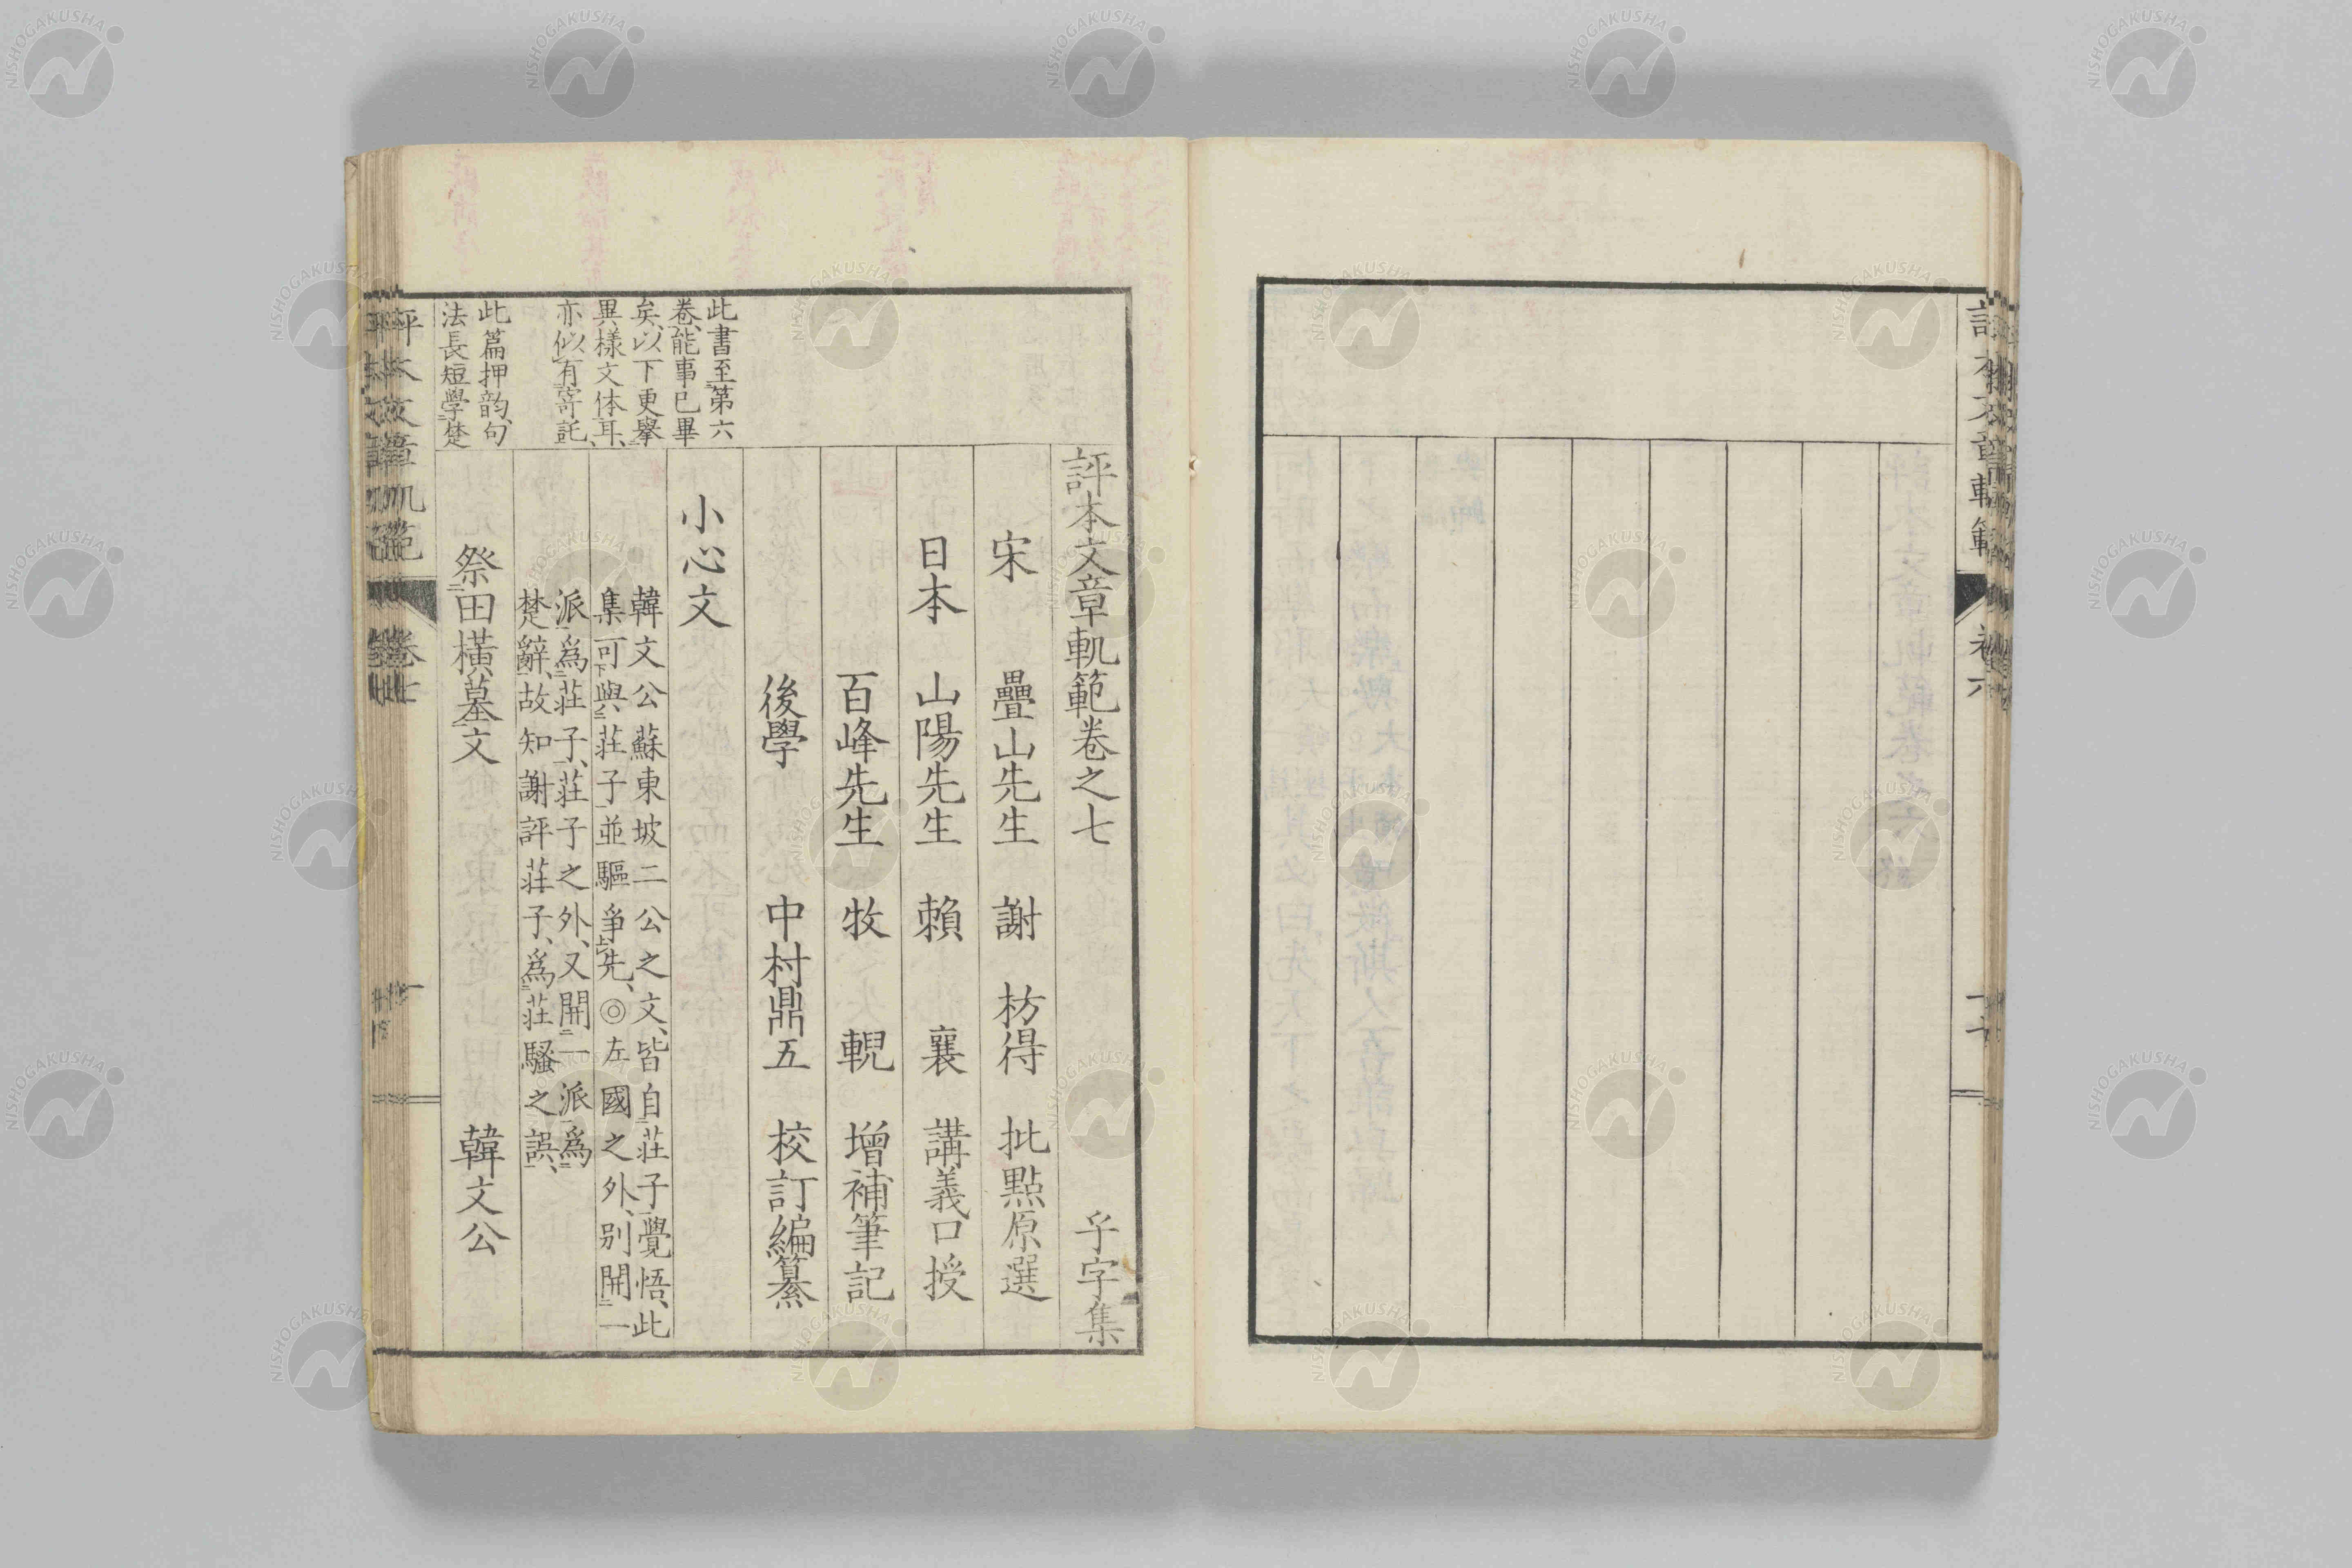 評本文章軌範卷之七 乎字集
宋 疊山先生 謝 枋得 批點原選
日本 山陽先生 賴 襄 講義口授
百峰先生 牧 輗 增補筆記
後學 中村鼎五 校訂編纂
小心文
韓文公蘇東坡二公之文、皆自莊子覺悟、此
集可與莊子並驅爭先、◎左國之外、別開一
派爲莊子、莊子之外、又開一派爲
楚辭、故知謝評莊子、爲莊騷之誤、
祭田橫墓文 韓文公
此書至第六
卷、能事已畢
矣、以下更擧
異樣文体耳、
亦似有寄託、
此篇押韵、句
法長短學楚
評本文章軌範 卷七 一
評本文章軌範 卷六
NISHOGAKUSHA